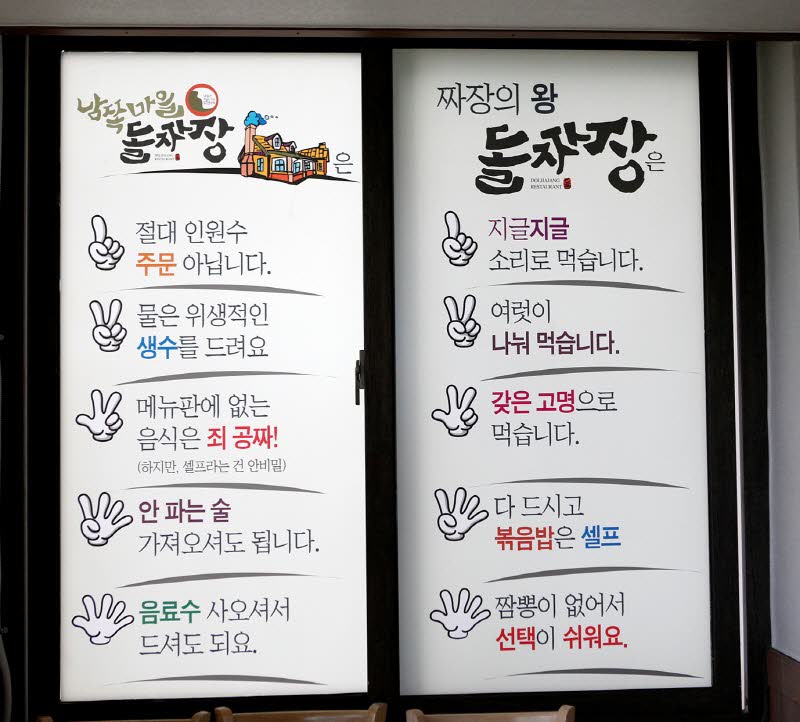 남짝마을
돌자장은
DOLHAJANG
RESTAURANT
절대 인원수
주문 아닙니다.
물은 위생적인
생수를 드려요
메뉴판에 없는
음식은 죄 공짜!
(하지만, 셀프라는 건 안비밀)
안 파는 술
가져오셔도 됩니다.
음료수 사오셔서
드셔도 되요.
짜장의 왕
돌자장은
DOLHAJANG
RESTAURANT
지글지글
소리로 먹습니다.
여럿이
나눠 먹습니다.
갖은 고명으로
먹습니다.
다 드시고
볶음밥은 셀프
짬뽕이 없어서
선택이 쉬워요.